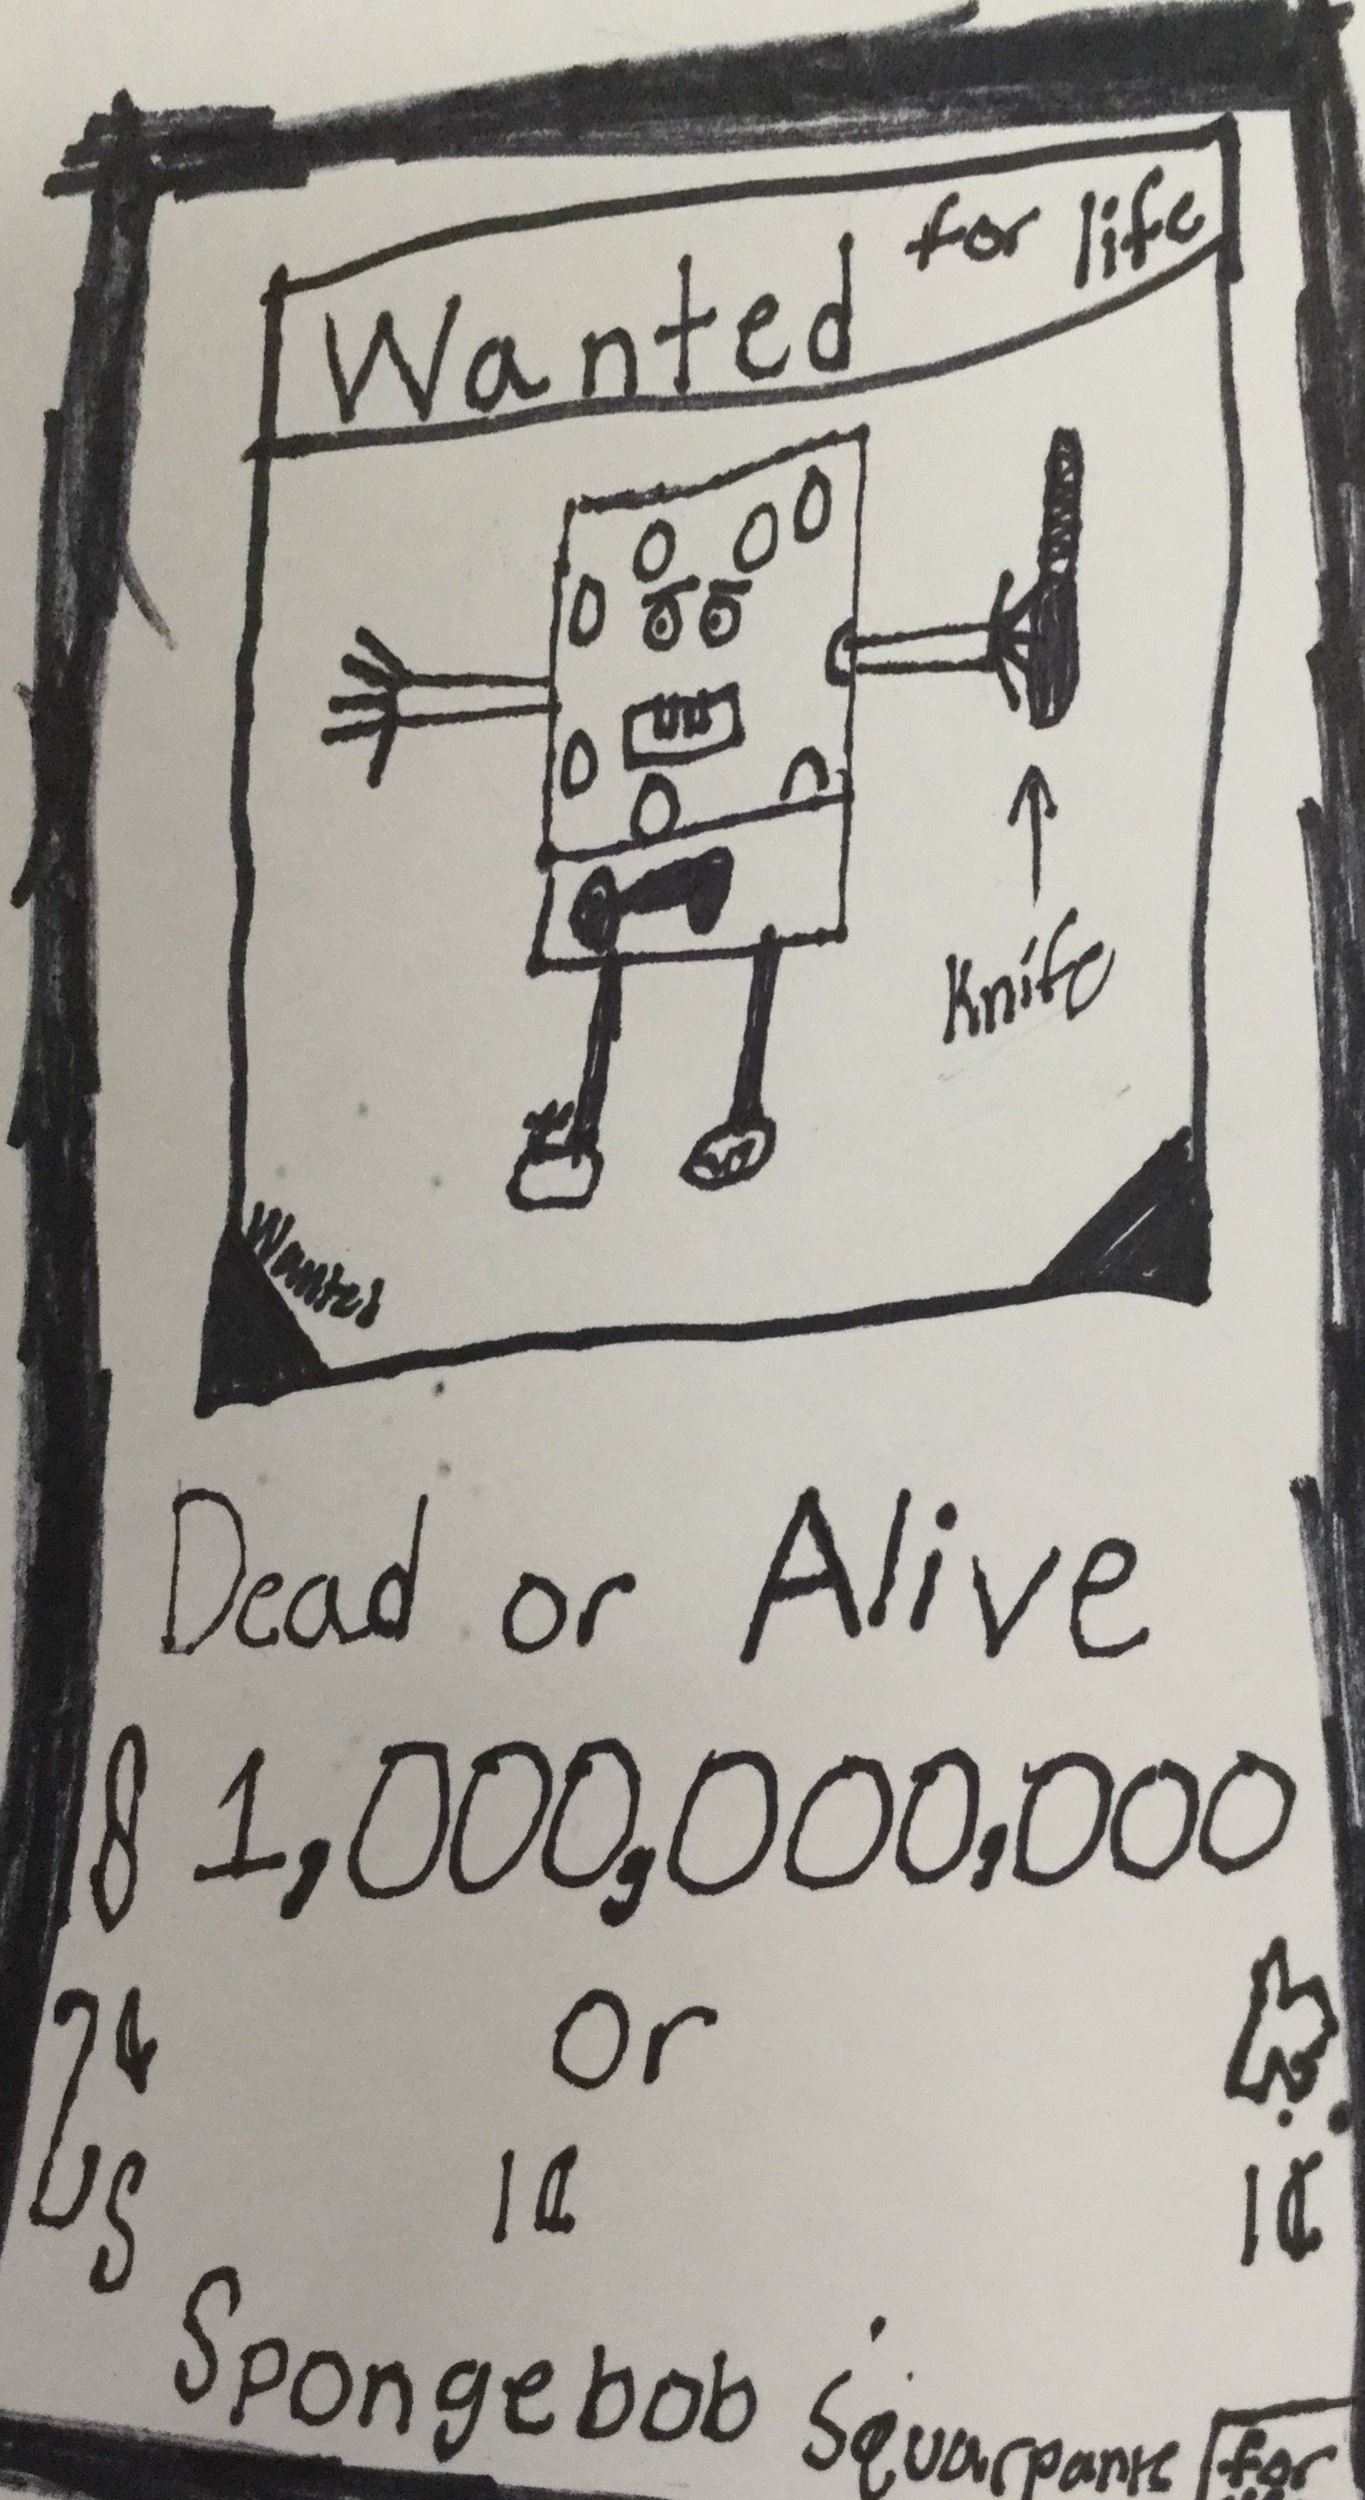 Wanted for life
Knife
Wanted
Dead or Alive
$ 1,000,000,000
or
1¢
1¢
Spongebob Squarpants
for